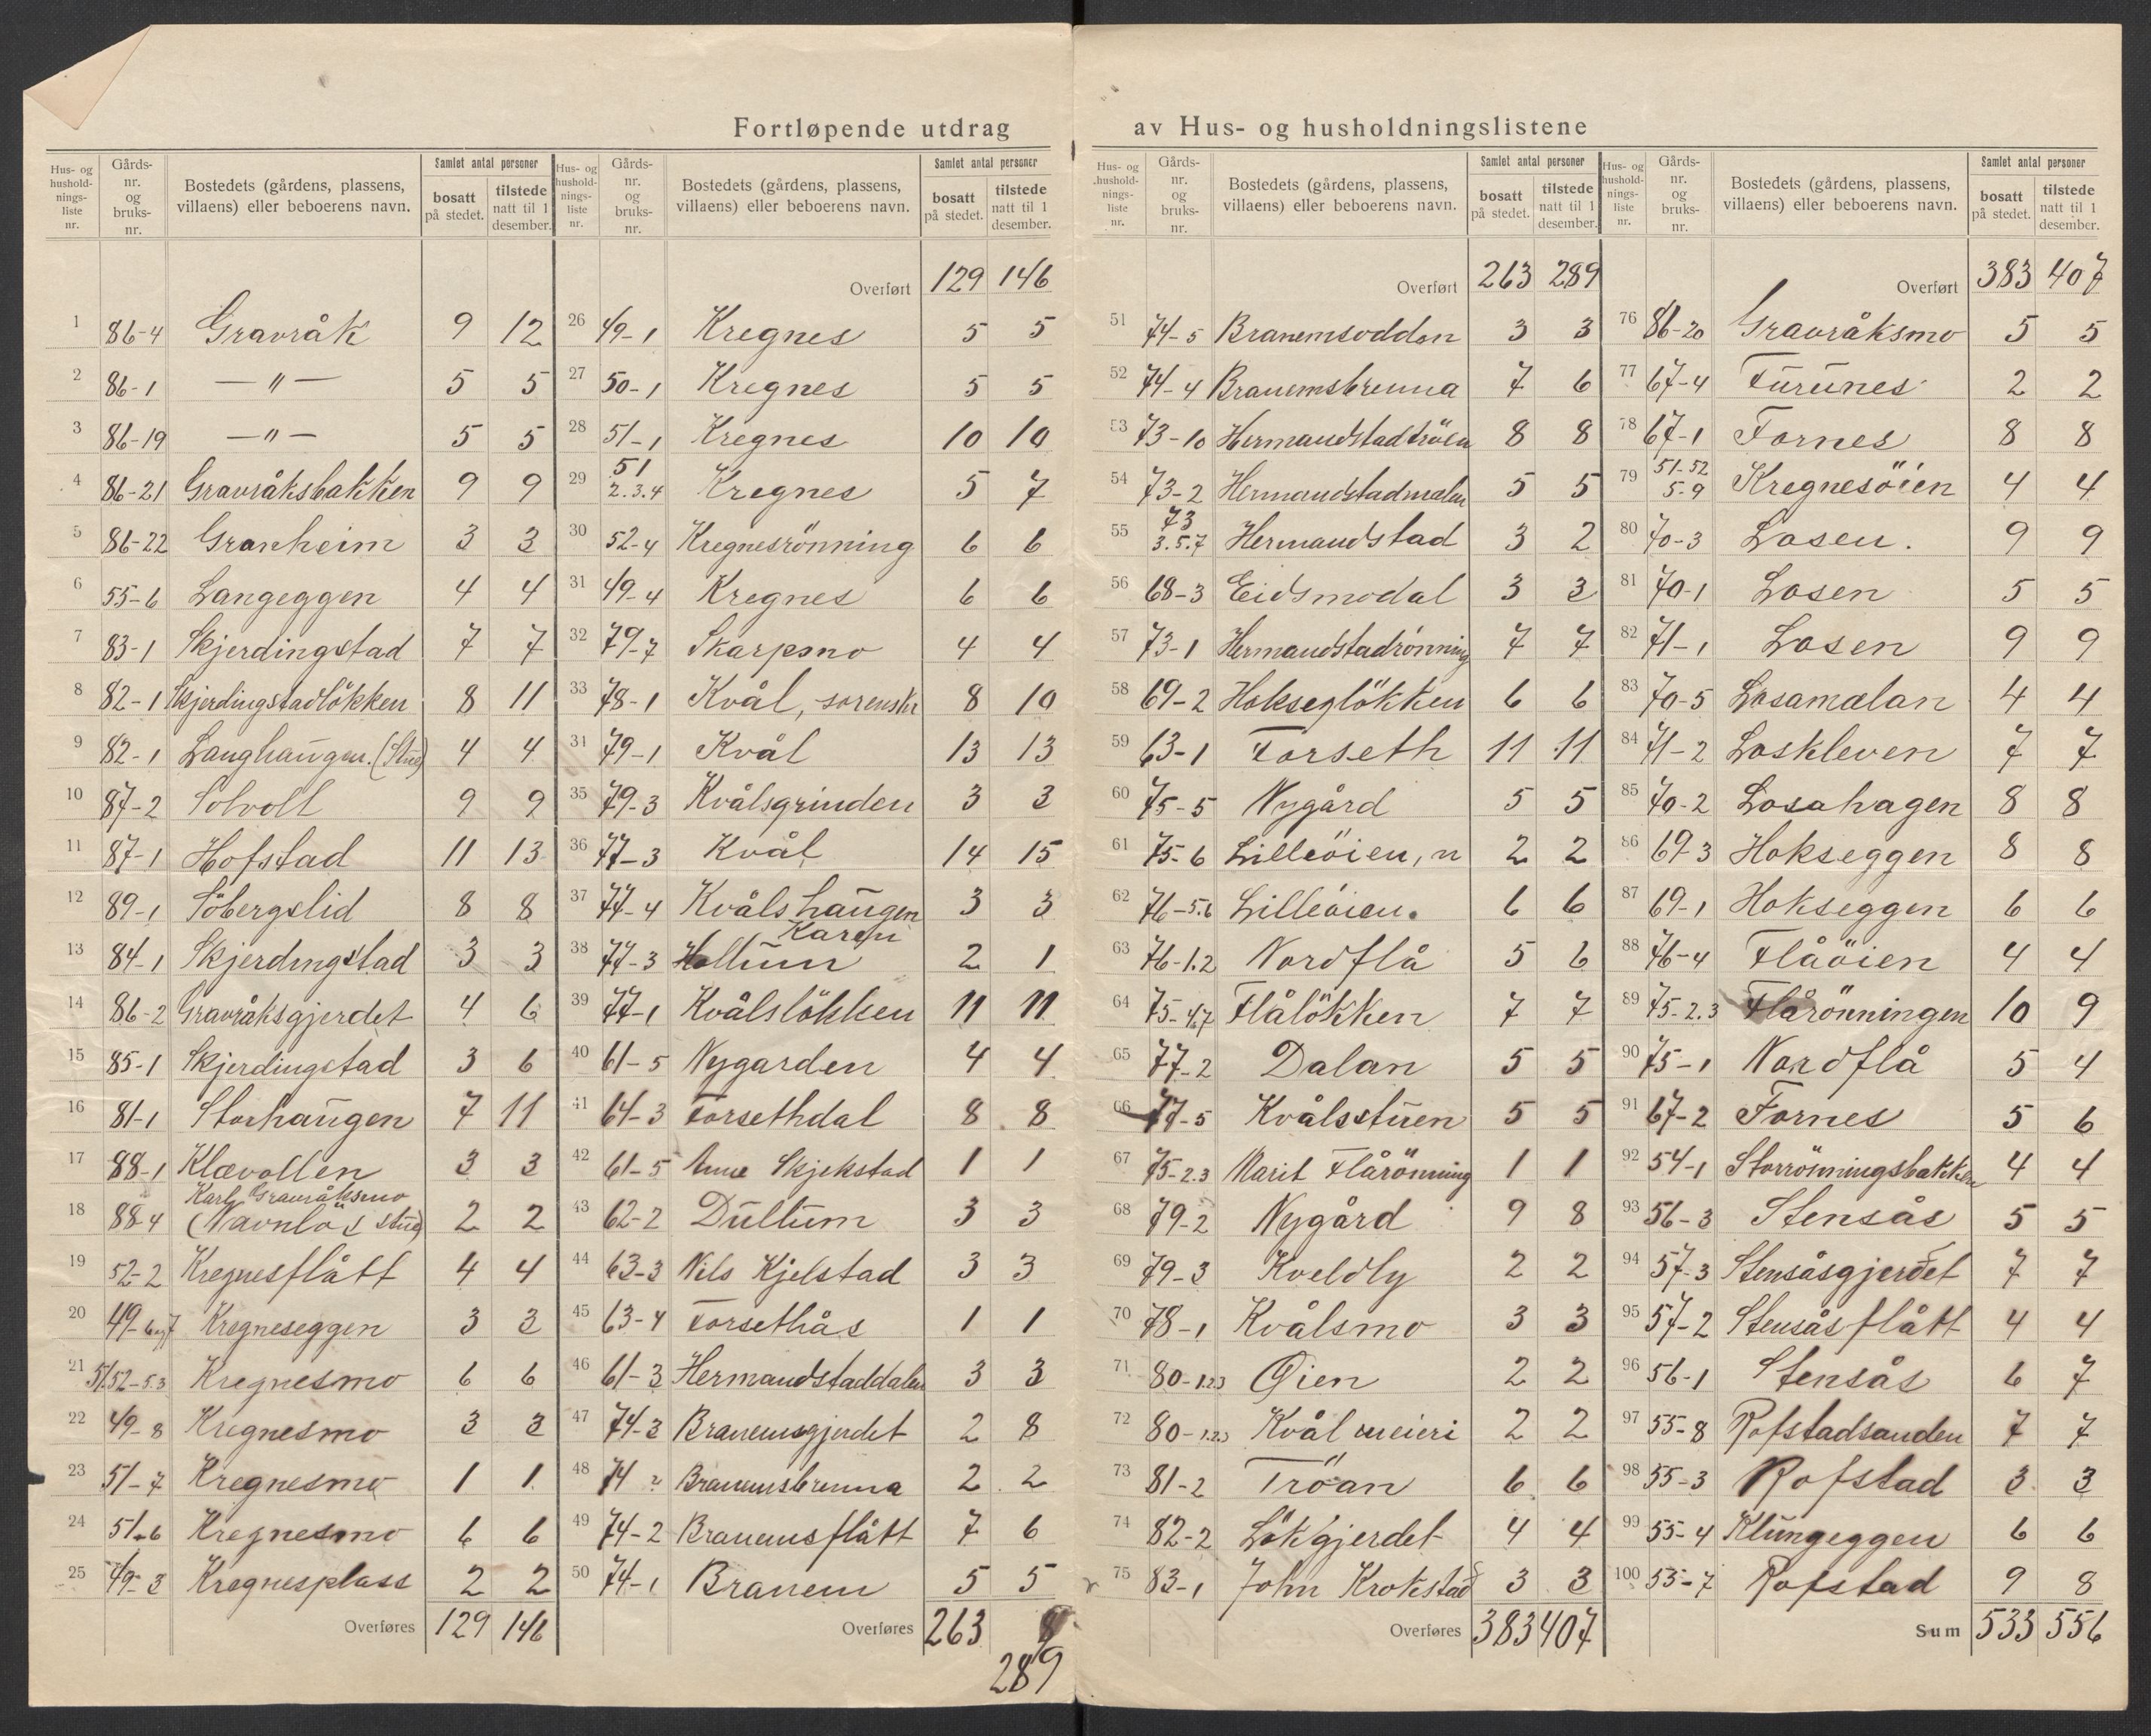 Fortløpende utdrag av Hus- og husholdningslistene
Hus- og husholdnings-liste nr. | Gårds-nr. og bruks-nr. | Bostedets (gårdens, plassens, villaens) eller beboerens navn. | Samlet antal personer bosatt på stedet. | tilstede natt til 1 desember.
1 86-4 Gravråk 9 12
2 86-1 — " — 5 5
3 86-19 — " — 5 5
4 86-21 Gravråksbakken 9 9
5 86-22 Granheim 3 3
6 55-6 Langeggen 4 4
7 83-1 Skjerdingstad 7 7
8 82-1 Skjerdingstadlökken 8 11
9 82-1 Langhaugen. (Stue) 4 4
10 87-2 Solvoll 9 9
11 87-1 Hofstad 11 13
12 89-1 Söbergslid 8 8
13 84-1 Skjerdingstad 3 3
14 86-2 Gravråksgjerdet 4 6
15 85-1 Skjerdingstad 3 6
16 81-1 Storhaugen 7 11
17 88-1 Klævollen 3 3
Karl Gravråksmo
18 88-4 (Navnlös stue) 2 2
19 52-2 Kregnesflått 4 4
20 49-6og7 Kregneseggen 3 3
21 51.52-5.3 Kregnesmo 6 6
22 49-8 Kregnesmo 3 3
23 51-7 Kregnesmo 1 1
24 51-6 Kregnesmo 6 6
25 49-3 Kregnesplass 2 2
Overføres 129 146
Hus- og husholdnings-liste nr. | Gårds-nr. og bruks-nr. | Bostedets (gårdens, plassens, villaens) eller beboerens navn. | Samlet antal personer bosatt på stedet. | tilstede natt til 1 desember.
Overført 129 146
26 49-1 Kregnes 5 5
27 50-1 Kregnes 5 5
28 51-1 Kregnes 10 10
29 51 2.3.4 Kregnes 5 7
30 52-4 Kregnesrönning 6 6
31 49-4 Kregnes 6 6
32 79-7 Skarpsno 4 4
33 78-1 Kvål, sorenskr 8 10
34 79-1 Kvål 13 13
35 79-3 Kvålsgrinden 3 3
36 77-3 Kvål 14 15
37 77-4 Kvålshaugen 3 3
Karen
38 77-3 Hollum 2 1
39 77-1 Kvålslökken 11 11
40 61-5 Nygarden 4 4
41 64-3 Forsethdal 8 8
42 61-5 Anne Skjekstad 1 1
43 62-2 Dultum 3 3
44 63-3 Nils Kjelstad 3 3
45 63-4 Forsethås 1 1
46 61-3 Hermandstaddalen 3 3
47 74-3 Branemsgjerdet 2 8
48 74 ? Branemsbrenna 2 2
49 74-2 Branemsflått 7 6
50 74-1 Branem 5 5
Overføres 263
289
Hus- og husholdnings-liste nr. | Gårds-nr. og bruks-nr. | Bostedets (gårdens, plassens, villaens) eller beboerens navn. | Samlet antal personer bosatt på stedet. | tilstede natt til 1 desember.
Overført 263 289
51 74-5 Branemsoddon 3 3
52 74-4 Branemsbrenna 7 6
53 73-10 Hermandstadtröen 8 8
54 73-2 Hermandstadmælen 5 5
55 73 3.5.7 Hermandstad 3 2
56 68-3 Eidsmodal 3 3
57 73-1 Hermandstadrönning 7 7
58 69-2 Hokseglökken 6 6
59 63-1 Forseth 11 11
60 75-5 Nygård 5 5
61 75-6 Lilleöien, n 2 2
62 76-5.6 Lilleöien. 6 6
63 76-1.2 Nordflå 5 6
64 75-4.7 Flålökken 7 7
65 77-2 Dalan 5 5
66 77-5 Kvålsstuen 5 5
67 75-2.3 Marit Flårönning 1 1
68 79-2 Nygård 9 8
69 79-3 Kveldly 2 2
70 78-1 Kvålsmo 3 3
71 80-1.2.3 Øien 2 2
72 80-1.2.3 Kvål meieri 2 2
73 81-2 Tröan 6 6
74 82-2 Lökgjerdet 4 4
75 83-1 John Krokstad 3 3
Overføres 383 407
Hus- og husholdnings-liste nr. | Gårds-nr. og bruks-nr. | Bostedets (gårdens, plassens, villaens) eller beboerens navn. | Samlet antal personer bosatt på stedet. | tilstede natt til 1 desember.
Overført 383 407
76 86-20 Gravråksmo 5 5
77 67-4 Furunes 2 2
78 67-1 Fornes 8 8
79 51-52 5-9 Kregnesöien 4 4
80 70-3 Losen. 9 9
81 70-1 Losen 5 5
82 71-1 Losen 9 9
83 70-5 Losamælan 4 4
84 71-2 Loskleven 7 7
85 70-2 Losahagen 8 8
86 69-3 Hokseggen 8 8
87 69-1 Hokseggen 6 6
88 76-4 Flåöien 4 4
89 75-2.3 Flårönningen 10 9
90 75-1 Nordflå 5 4
91 67-2 Fornes 5 6
92 54-1 Storrönningsbakken 4 4
93 56-3 Stensås 5 5
94 57-3 Stensåsgjerdet 7 7
95 57-2 Stensåsflått 4 4
96 56-1 Stensås 6 7
97 55-8 Rofstadsanden 7 7
98 55-3 Rofstad 3 3
99 55-4 Klungeggen 6 6
100 55-7 Rofstad 9 8
Sum 533 556